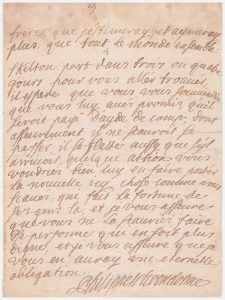 freres que j'estimeray et aymeray
plus que tout le monde ensemble
Skelton part dans trois ou quatre
jours pour vous aller trouver
il espere que vous vous
que vous luy aves promis, quil
seroit payé d'ayde de camp, dont
assurement il ne sauroit se
passer, il se flatte aussy que s'il
arrivoit quelque action vous
voudries bien luy en faire porter
la nouvelle icy, chose comme vous
saves qui fait la fortune de
ses gens la, et je vous assure
que vous ne la sauries faire
de personne qui en soit plus
digne, et je vous assure que je
vous en auray une eternelle
obligation
Philippe de Vendosme